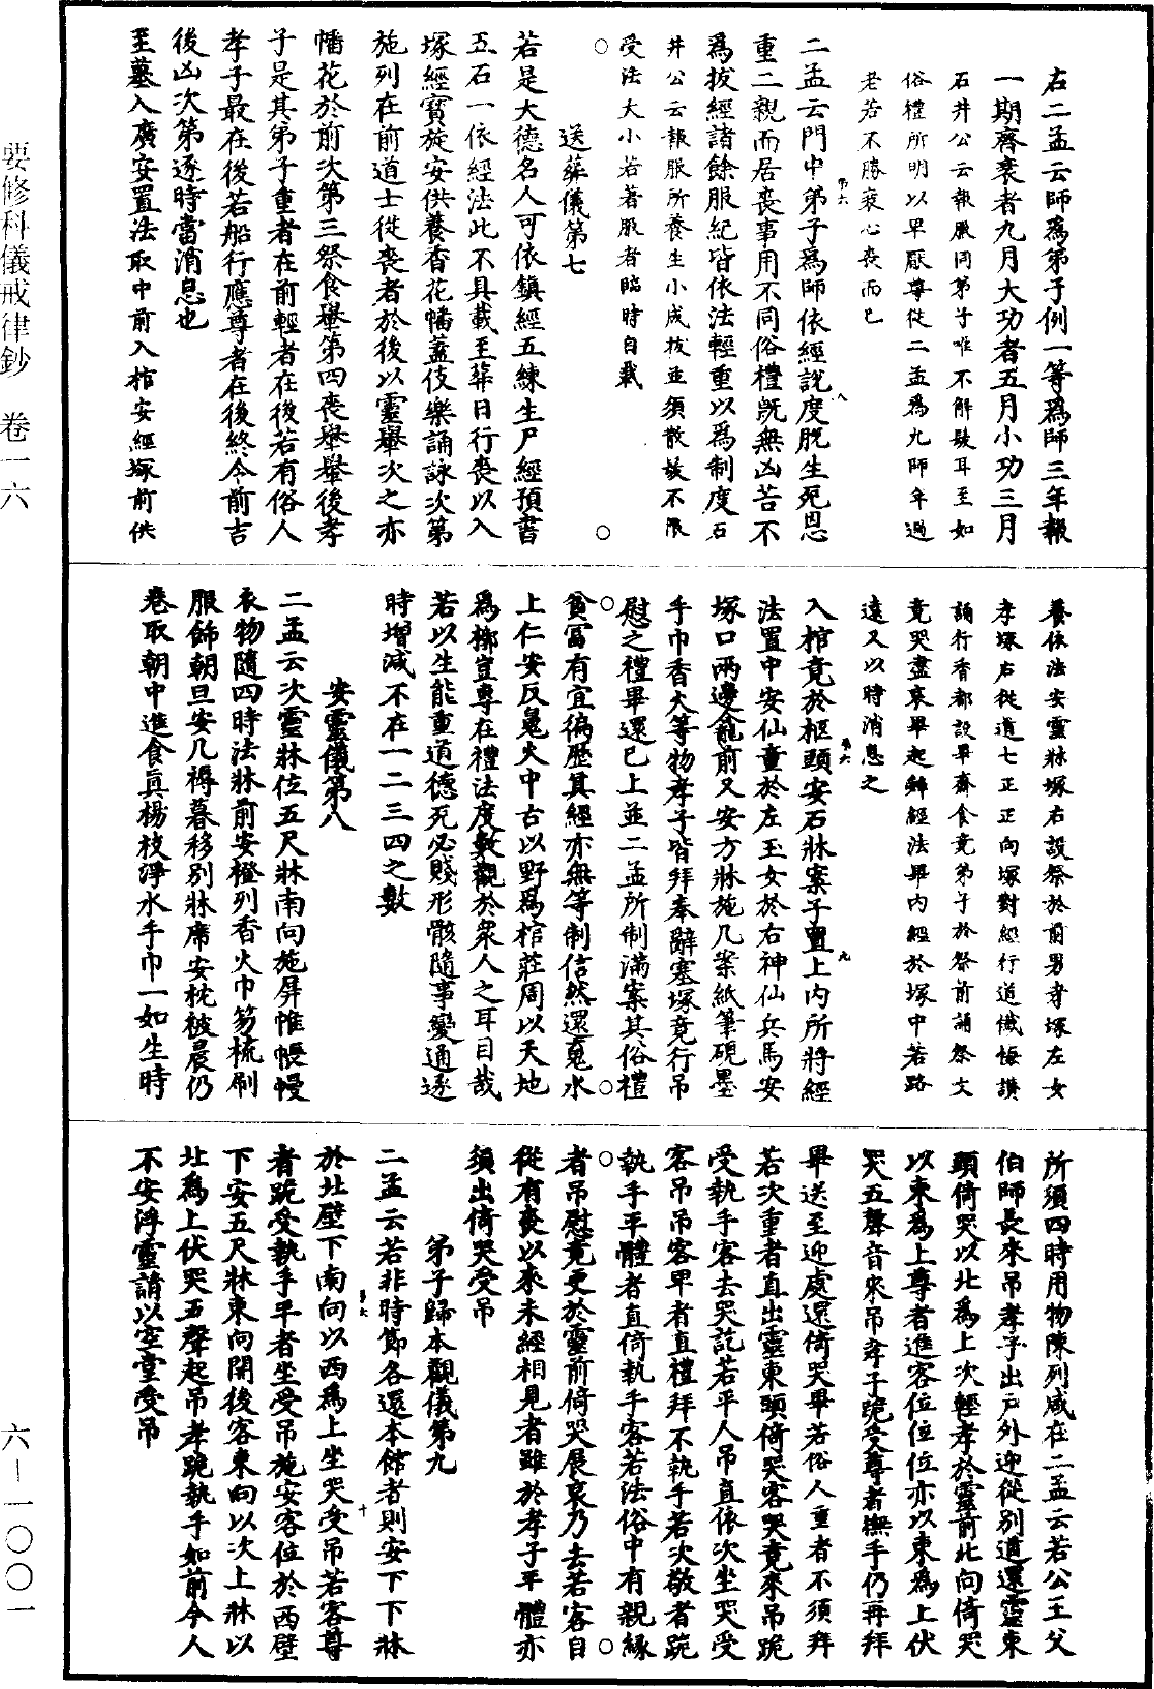 右二孟云師為弟子例一等為師三年報
一期齊衰者九月大功者五月小功三月
石井公云報服同弟子唯不解髮耳至如
俗禮所明以卑厭尊從二孟為允師年過
老若不勝哀心喪而已
二孟云門中弟子為師依經說度脫生死恩
重二親而居喪事用不同俗禮既無凶苦不
為披經諸餘服紀皆依法輕重以為制度石
井公云報服所養生小成拔並須散髮不限
受法大小若著服者臨時自裁
送葬儀第七
若是大德名人可依鎮經五練生尸經預書
五石一依經法此不具載至葬日行喪以入
塚經寶施安供養香花幡蓋伎樂誦詠次第
施列在前道士從喪者於後以靈轝次之亦
幡花於前次第三祭食轝第四喪轝轝後孝
子是其弟子重者在前輕者在後若有俗人
孝子最在後若船行應尊者在後終令前吉
後凶次第逐時當消息也
至墓入廣安置法取中前入棺安經塚前供
養依法安靈牀塚右設祭於前男孝塚左女
孝塚右從道士正正向塚對經行道懺悔讚
誦行香都設畢齋食竟弟子於祭前誦祭文
竟哭盡哀畢起辭經法畢內經於塚中若路
遠又以時消息之
入棺竟於柩頭安石牀案子置上內所將經
法置中安仙童於左玉女於右神仙兵馬安
塚口兩邊龕前又安方牀施几案紙筆硯墨
手巾香火等物孝子皆拜奉辭塞塚竟行吊
慰之禮畢還已上並二孟所制滿案其俗禮
貧富有宜徧歷其經亦無等制信然還冤水
上仁安反冤火中古以野為棺莊周以天地
為槨豈專在禮法度數觀於衆人之耳目哉
若以生能重道德死必賤形骸隨事變通逐
時增減不在一二三四之數
安靈儀第八
二孟云次靈牀位五尺牀南向施屏帷帳幔
衣物隨四時法牀前安橙列香火巾笏梳刷
服飾朝旦安几褥暮移別牀席安枕被晨仍
卷取朝中進食具楊枝淨水手巾一如生時
所須四時用物陳列咸在二孟云若公王父
伯師長來吊孝子出戶外迎從別道還靈東
頭倚哭以北為上次輕孝於靈前北向倚哭
以東為上尊者進客位位位亦以東為上伏
哭五聲音來吊孝子跪受尊者撫手仍再拜
畢送至迎處還倚哭畢若俗人重者不須拜
若次重者直出靈東頭倚哭客哭竟來吊跪
受執手客去哭訖若平人吊直依次坐哭受
客吊吊客卑者直禮拜不執手若次敬者跪
執手平體者直倚執手客若法俗中有親緣
者吊慰竟更於靈前倚哭展哀乃去若客自
從有喪以來未經相見者雖於孝子平體亦
須出倚哭受吊
弟子歸本觀儀第九
二孟云若非時節各還本館者則安下下牀
於北壁下南向以西為上坐哭受吊若客尊
者跪受執手平者坐受吊施安客位於西壁
下安五尺牀東向開後客東向以次上牀以
北為上伏哭五聲起吊孝跪執手如前今人
不安浮靈請以空堂受吊
要修科儀戒律鈔 卷一六
六—一〇〇一